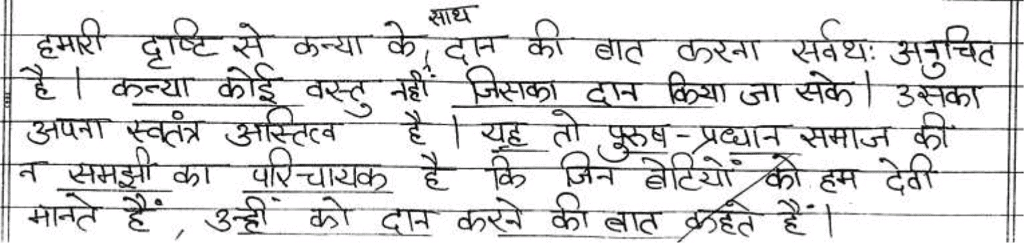 हमारी दृष्टि से कन्या के साथ दान की बात करना सर्वथः अनुचित
है । कन्या कोई वस्तु नहीं जिसका दान किया जा सके । उसका
अपना स्वतंत्र अस्तित्व है । यह तो पुरुष-प्रध्धान समाज की
न समझी का परिचायक है कि जिन बेटियों को हम देवी
मानते हैं , उन्हीं को दान करने की बात कहते हैं ।